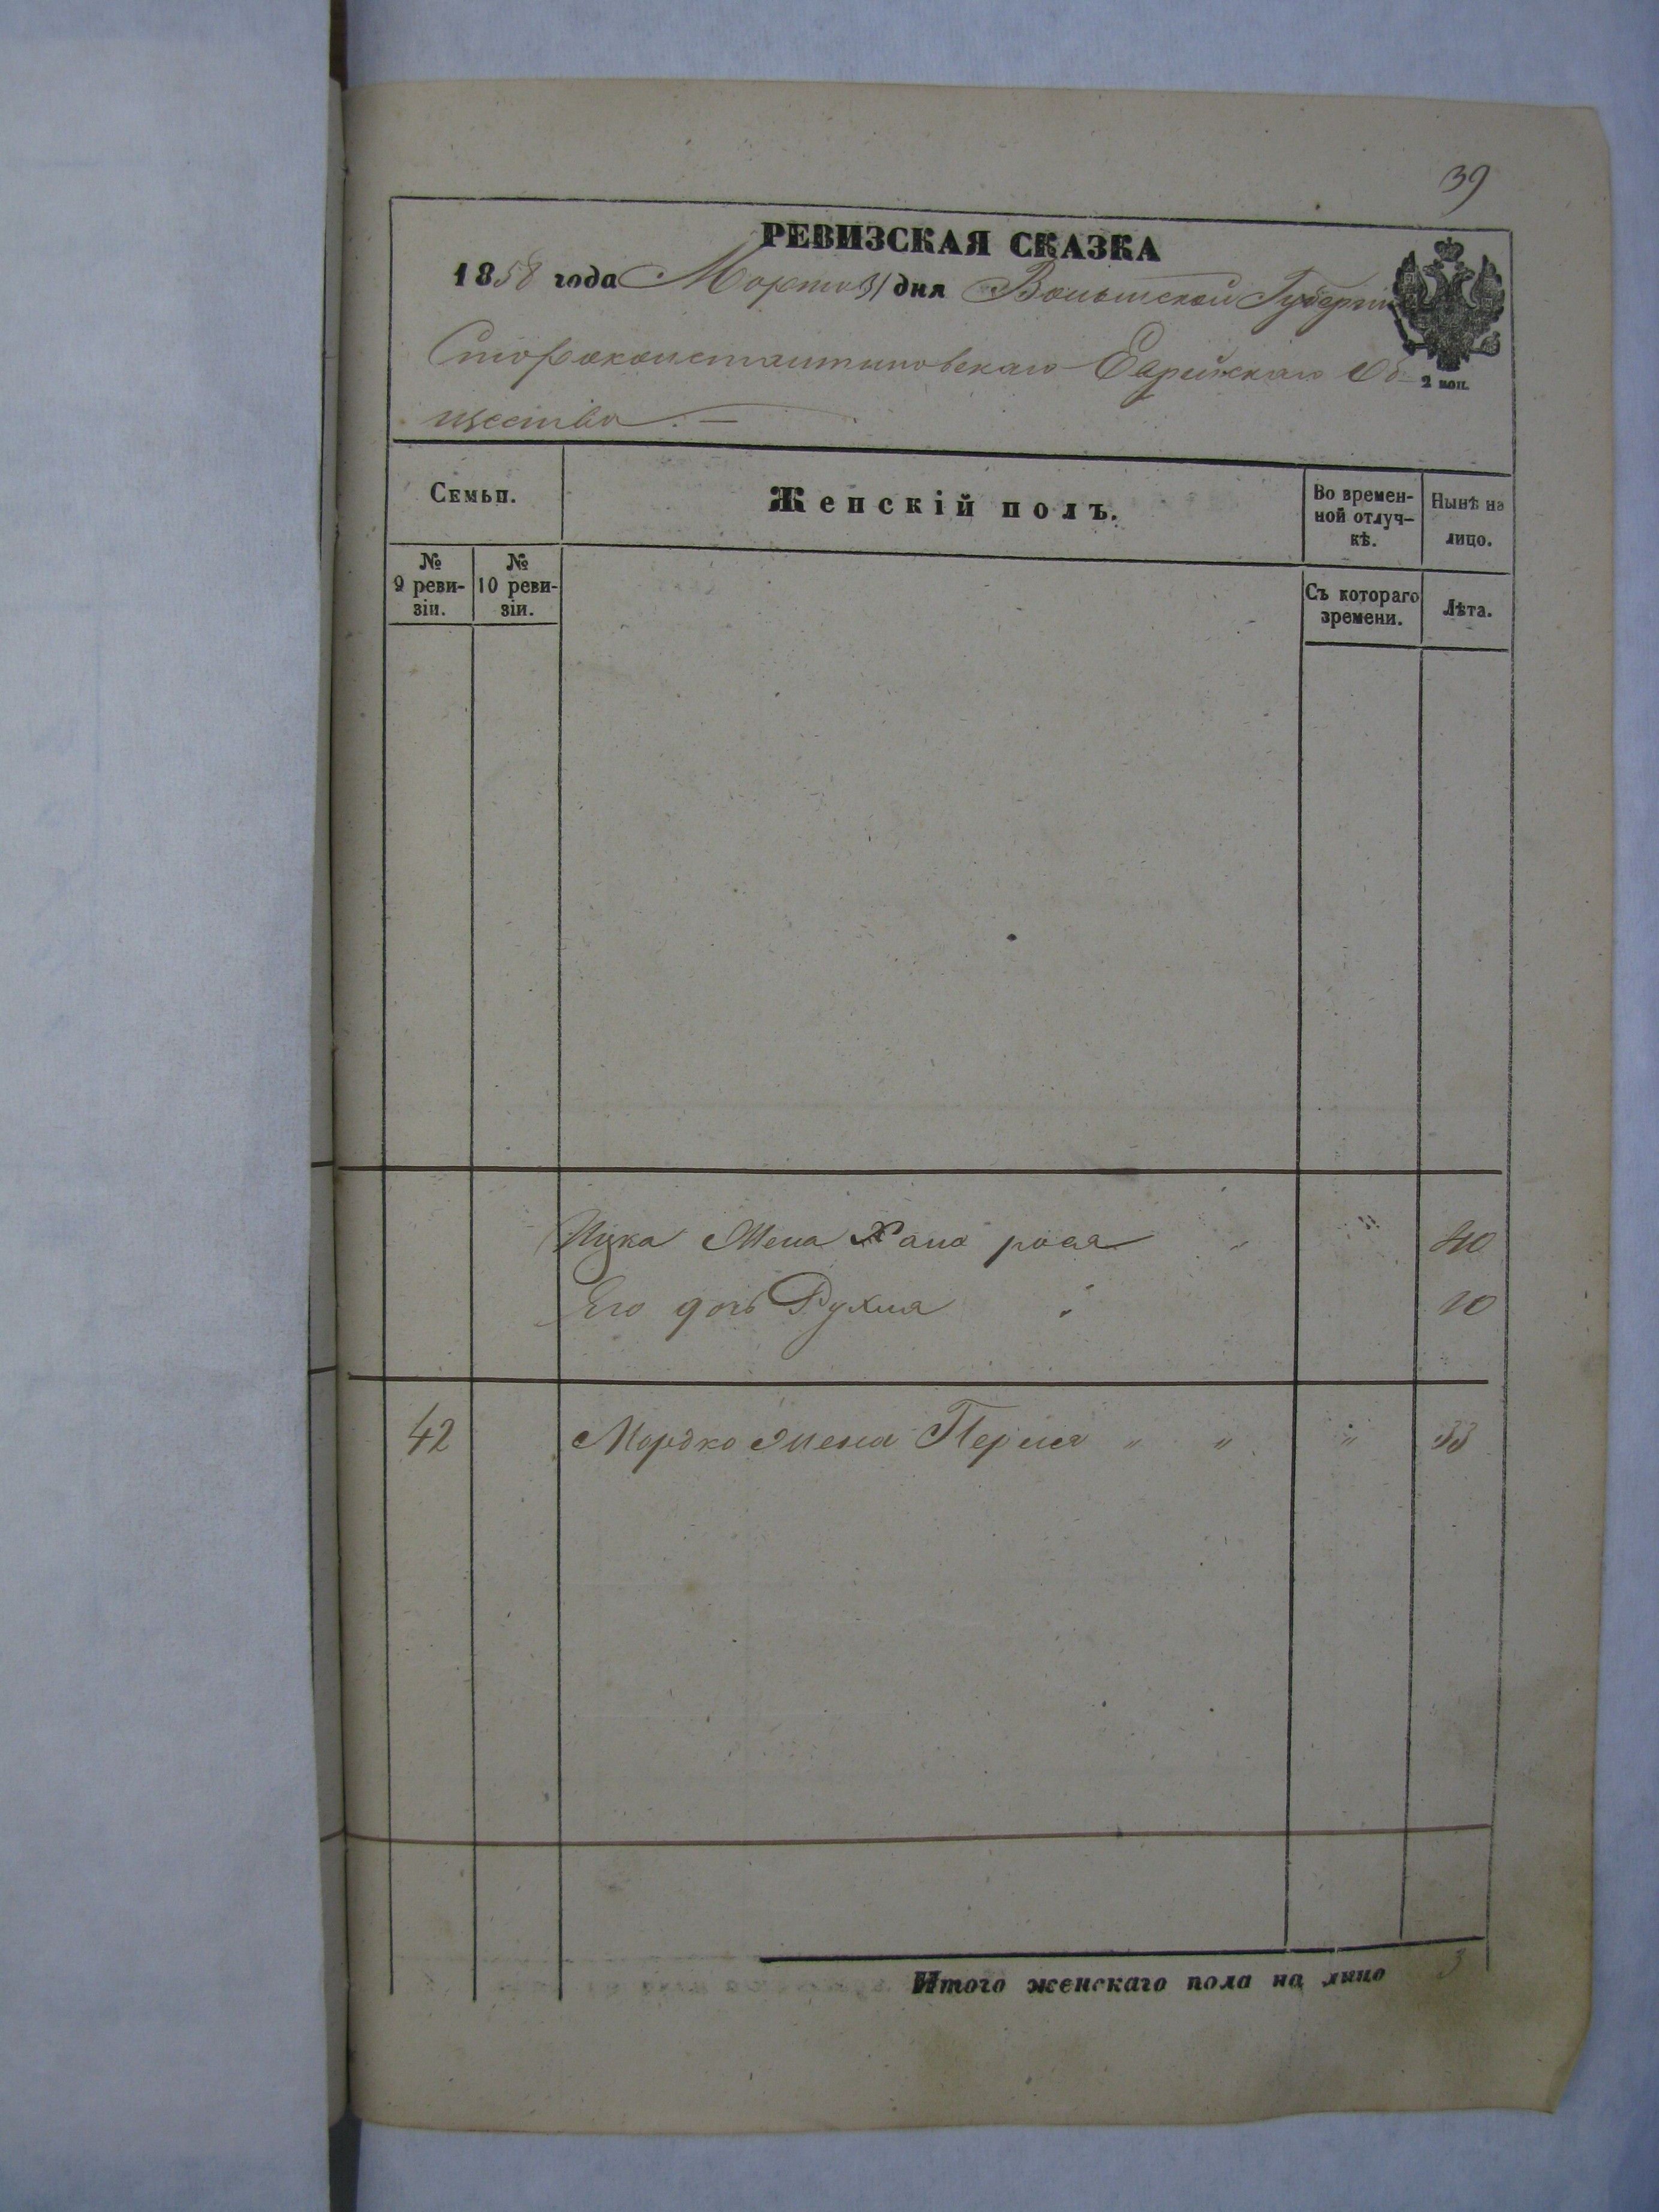 39
РЕВИЗСКАЯ СКАЗКА
1858 года Марта 31 дня Волынской Губерніи
Староконстантиновскаго Еврейскаго Об-
щества. —
2 коп.
Семьи.
Женскій полъ.
Во времен-
ной отлуч-
кѣ.
Нынѣ на
лицо.
№
9 реви-
зіи.
№
10 реви-
зіи.
Съ котораго
времени.
Лѣта.
Ицка Жена Хана роза " 40
Его дочь Рухля 10
42 Мордко жена Перля " " " 33
Итого женскаго пола на лицо 3